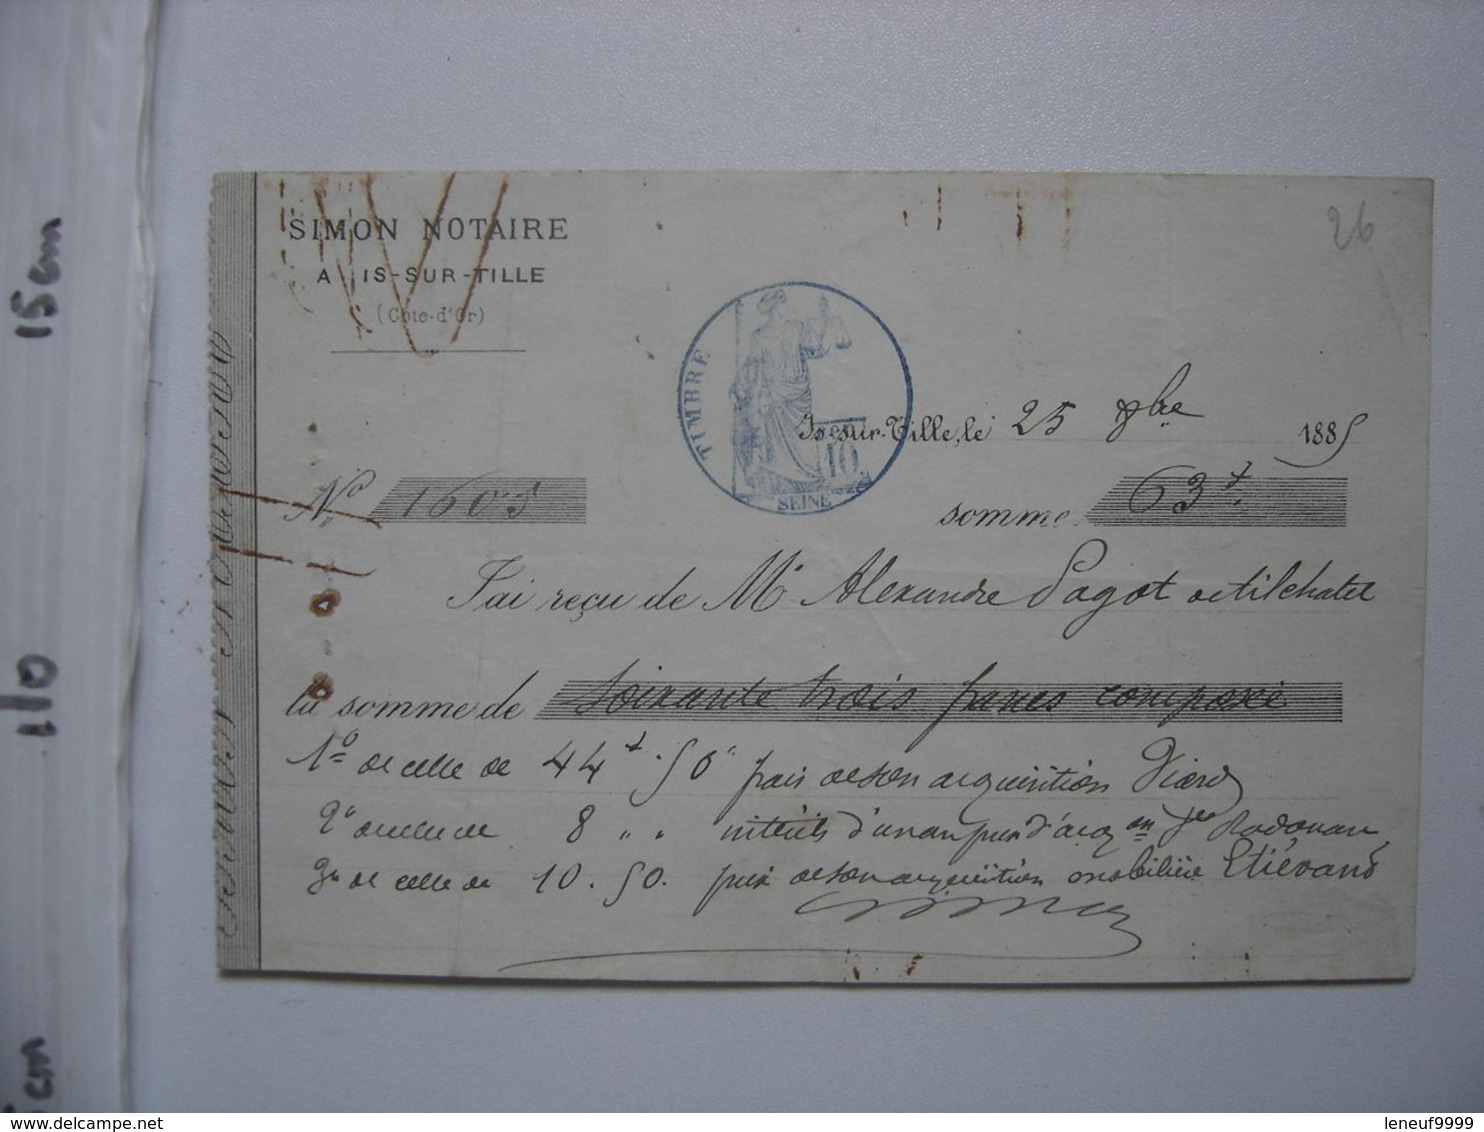 15cm
10
5cm
SIMON NOTAIRE
A IS-SUR-TILLE
(Côte-d'Or)
26
TIMBRE
10
SEINE
Is-sur-Tille, le 25 8bre 1885
No 1605
somme 63f
J'ai reçu de Mr Alexandre Pagot de Tilchatel
la somme de soixante trois francs composée
1o de celle de 44f.50c frais de son acquisition Viard
2o de celle de 8 " " intérêts d'un an prix d'acqon Radouan
3o de celle de 10.50. prix de son acquisition mobilière Etiévand
Simon
Delcampe.net
leneuf9999